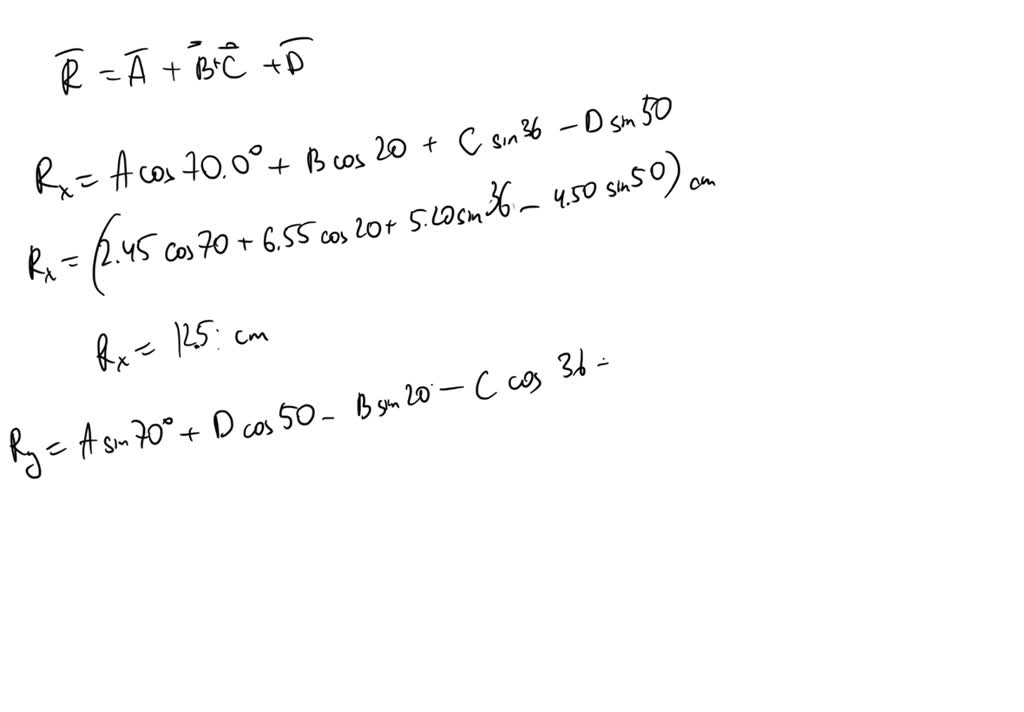 R̅ = A̅ + B⃗+C⃗ + D̅
Rₓ = A cos 70.0° + B cos 20 + C sin 36 − D sin 50
Rₓ = (2.45 cos 70 + 6.55 cos 20 + 5.20 sin 36 − 4.50 sin 50) cm
Rₓ = 12.5 cm
R_y = A sin 70° + D cos 50 − B sin 20 − C cos 36 =